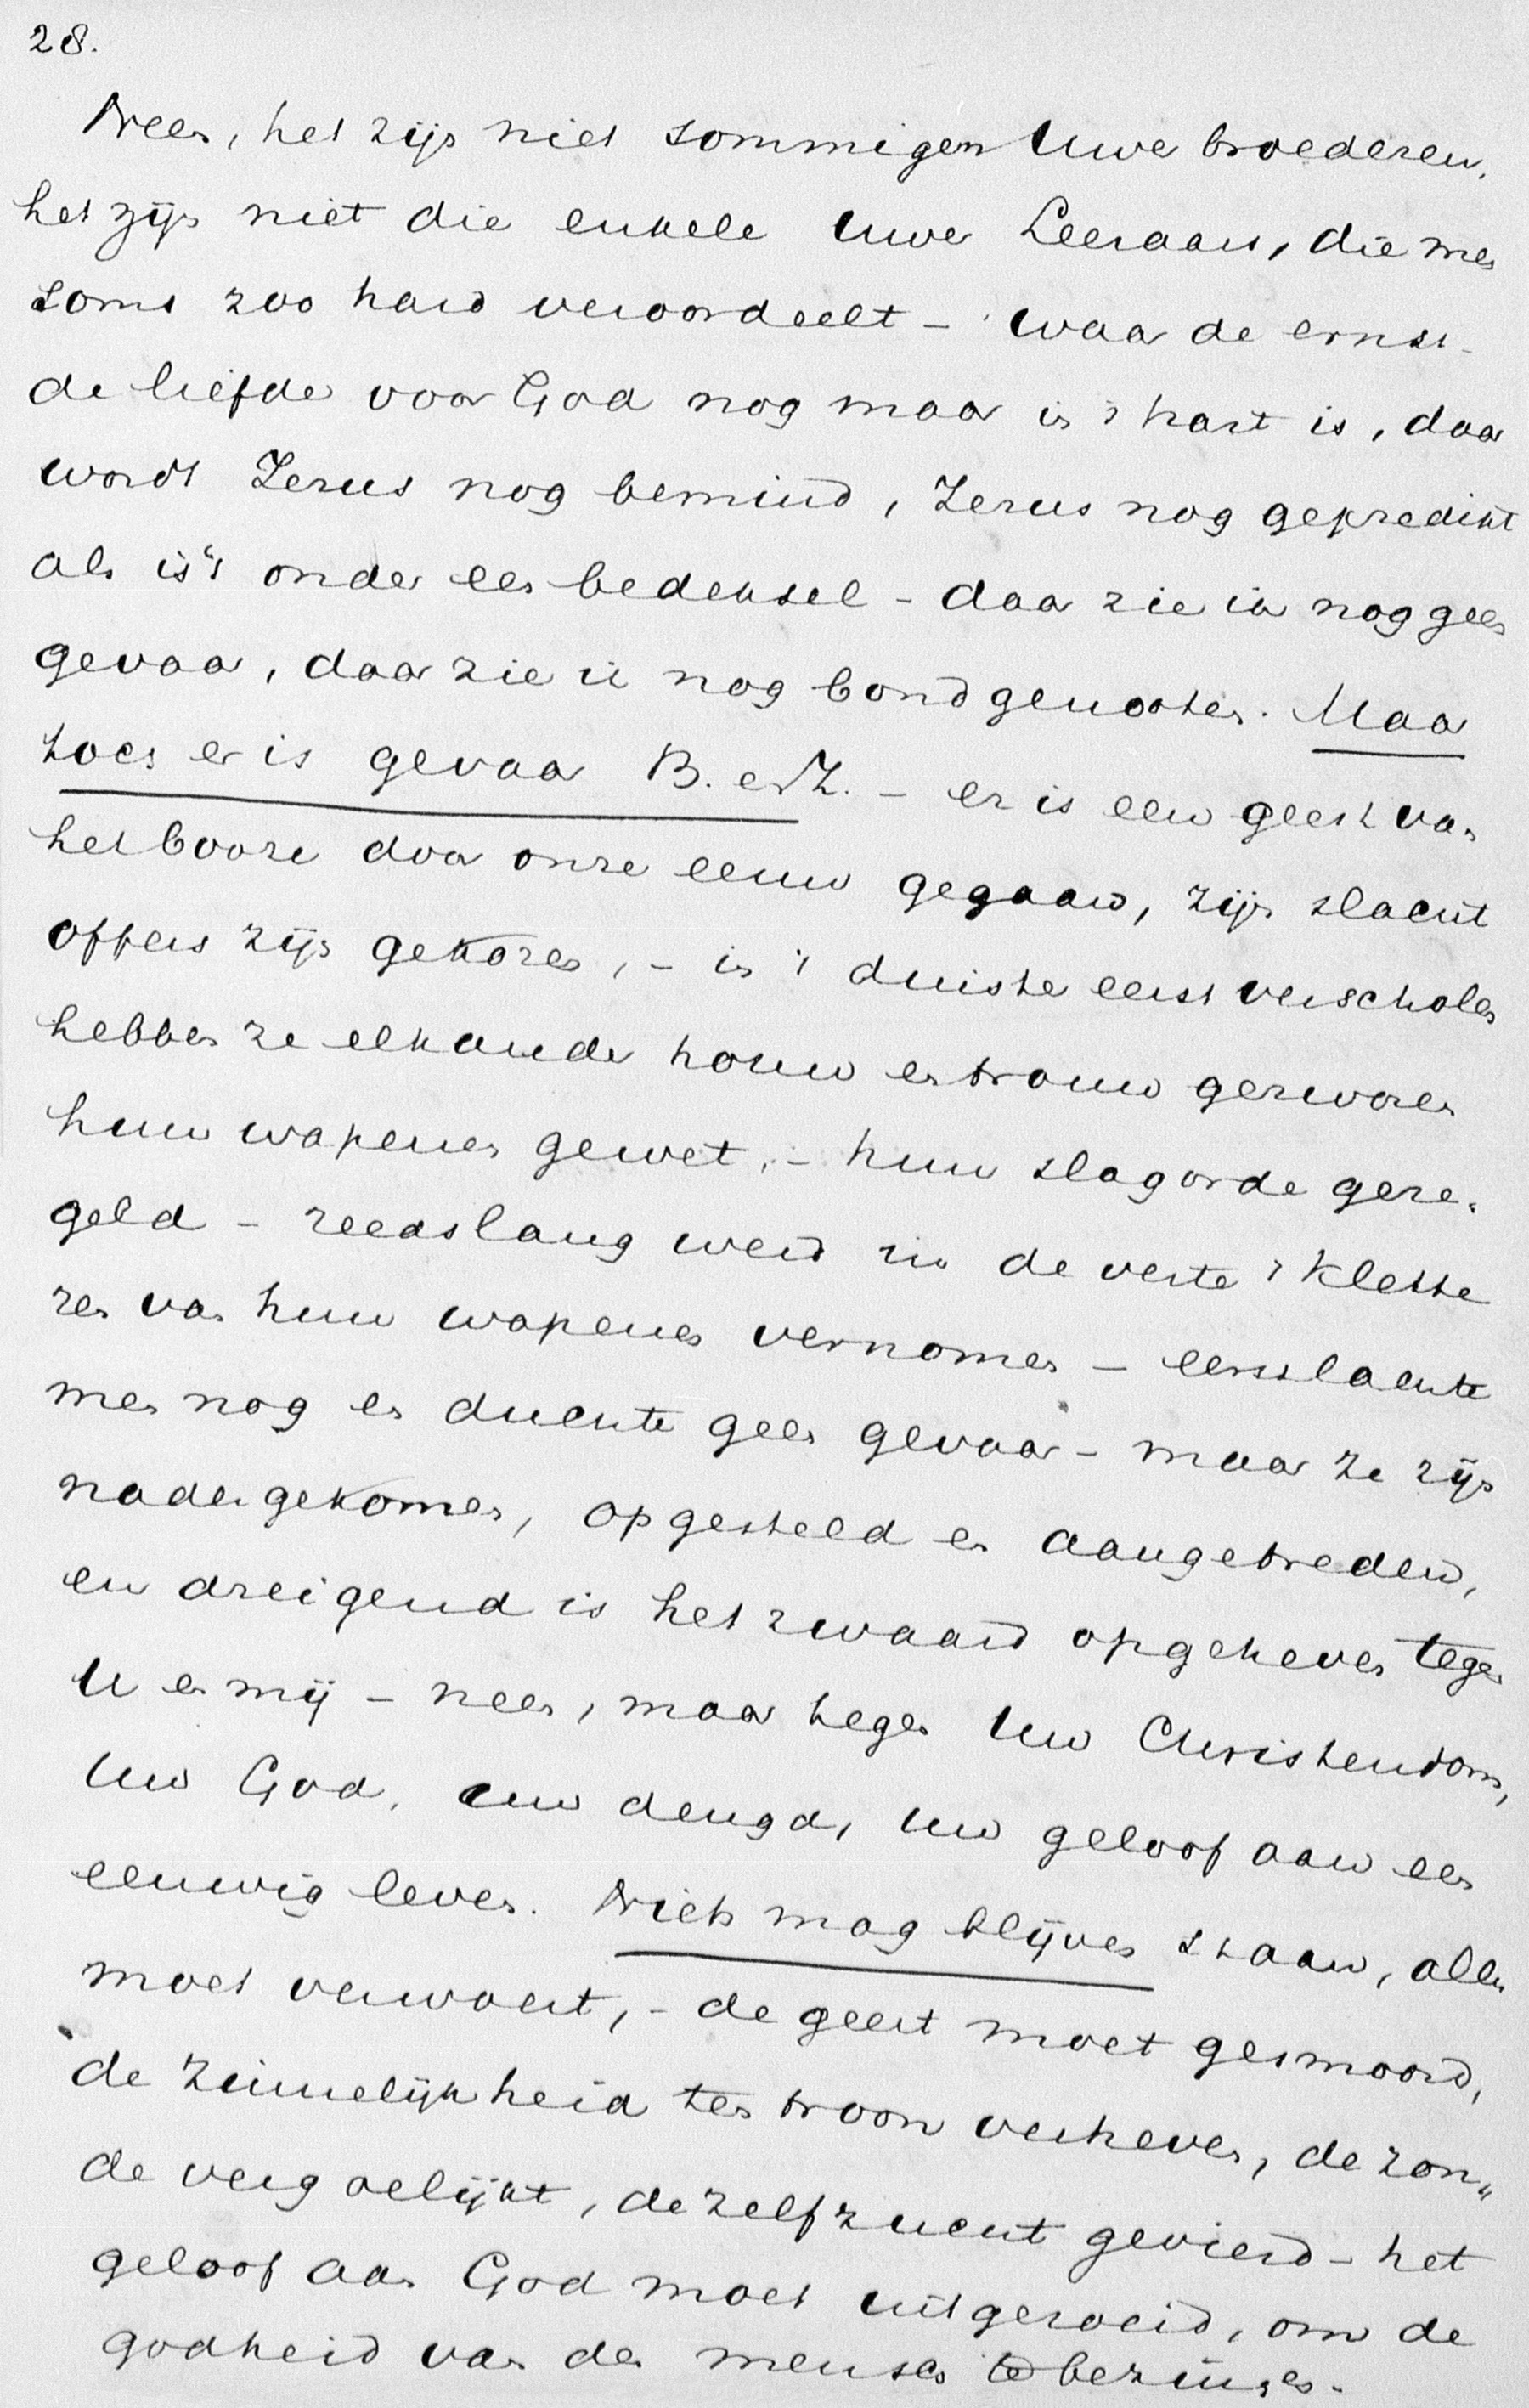 28.
Neen, het zijn niet sommigen Uwer broederen,
het zijn niet die enkele Uwer Leeraars, die men
soms zoo hard veroordeelt – waar de ernst –
de liefde voor God nog maar in 't hart is, daar
wordt Jezus nog bemind, Jezus nog gepredikt
als is 't onder een bedeksel – daar zie ik nog geen
gevaar, daar zie ik nog bondgenooten. Maar
toch er is gevaar B. en Z. – er is een geest van
het booze door onze eeuw gegaan, zijn slacht
offers zijn gekozen, – in 't duister eerst verscholen
hebben ze elkander houw en trouw gezworen
hun wapenen gewet, – hun slagorde gere-
geld – reeds lang werd in de verte 't klette
ren van hun wapenen vernomen – eerst lachte
men nog en duchtte geen gevaar – maar ze zijn
nader gekomen, opgesteld en aangetreden,
en dreigend is het zwaard opgeheven tegen
U en mij – neen, maar tegen Uw Christendom,
Uw God, uw deugd, uw geloof aan een
eeuwig leven. Niets mag blijven staan, alles
moet verwoest, – de geest moet gesmoord,
de zinnelijkheid ten troon verheven, de zon„
de vergoelijkt, de zelfzucht gevierd – het
geloof aan God moet uitgeroeid, om de
godheid van den mensch te bezingen.